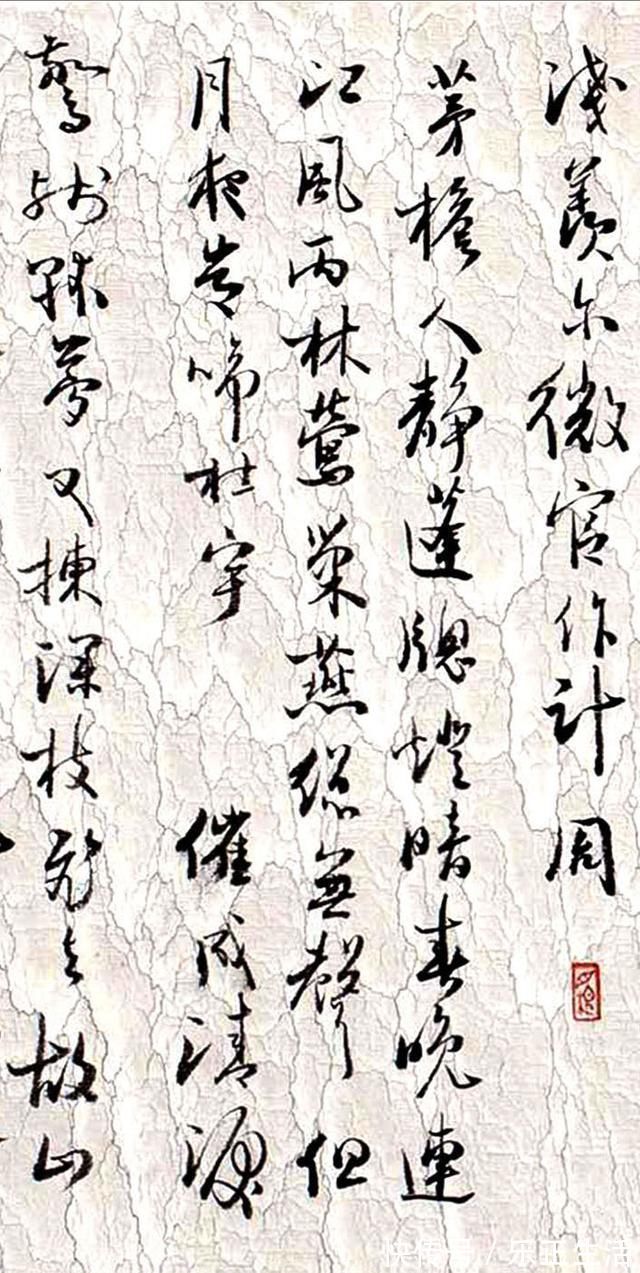 淺羨尔微官作計周
茅檐人靜蓬牕燈暗春晚連
江風雨林鶯巢燕總無聲但
月夜常啼杜宇 催成清淚
驚殘孤夢又揀深枝飛去故山